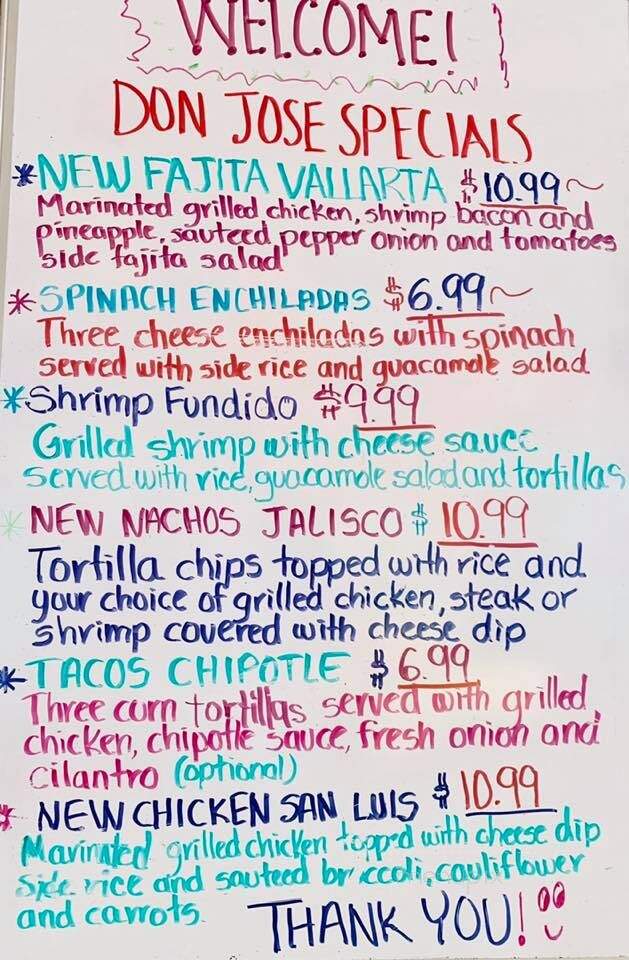 WELCOME!
DON JOSE SPECIALS
*NEW FAJITA VALLARTA $10.99~
Marinated grilled chicken, shrimp bacon and
pineapple, sauteed pepper onion and tomatoes
side fajita salad
*SPINACH ENCHILADAS $6.99~
Three cheese enchiladas with spinach
served with side rice and guacamole salad
*Shrimp Fundido $9.99
Grilled shrimp with cheese sauce
served with rice, guacamole salad and tortillas
*NEW NACHOS JALISCO $10.99
Tortilla chips topped with rice and
your choice of grilled chicken, steak or
shrimp covered with cheese dip
*TACOS CHIPOTLE $6.99
Three corn tortillas served with grilled
chicken, chipotle sauce, fresh onion and
cilantro (optional)
*NEW CHICKEN SAN LUIS $10.99
Marinated grilled chicken topped with cheese dip
Side rice and sauteed broccoli, cauliflower
and carrots.
THANK YOU!